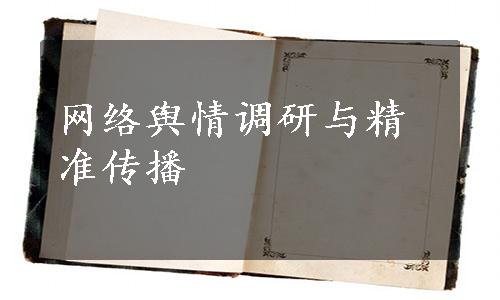 网络舆情调研与精
准传播